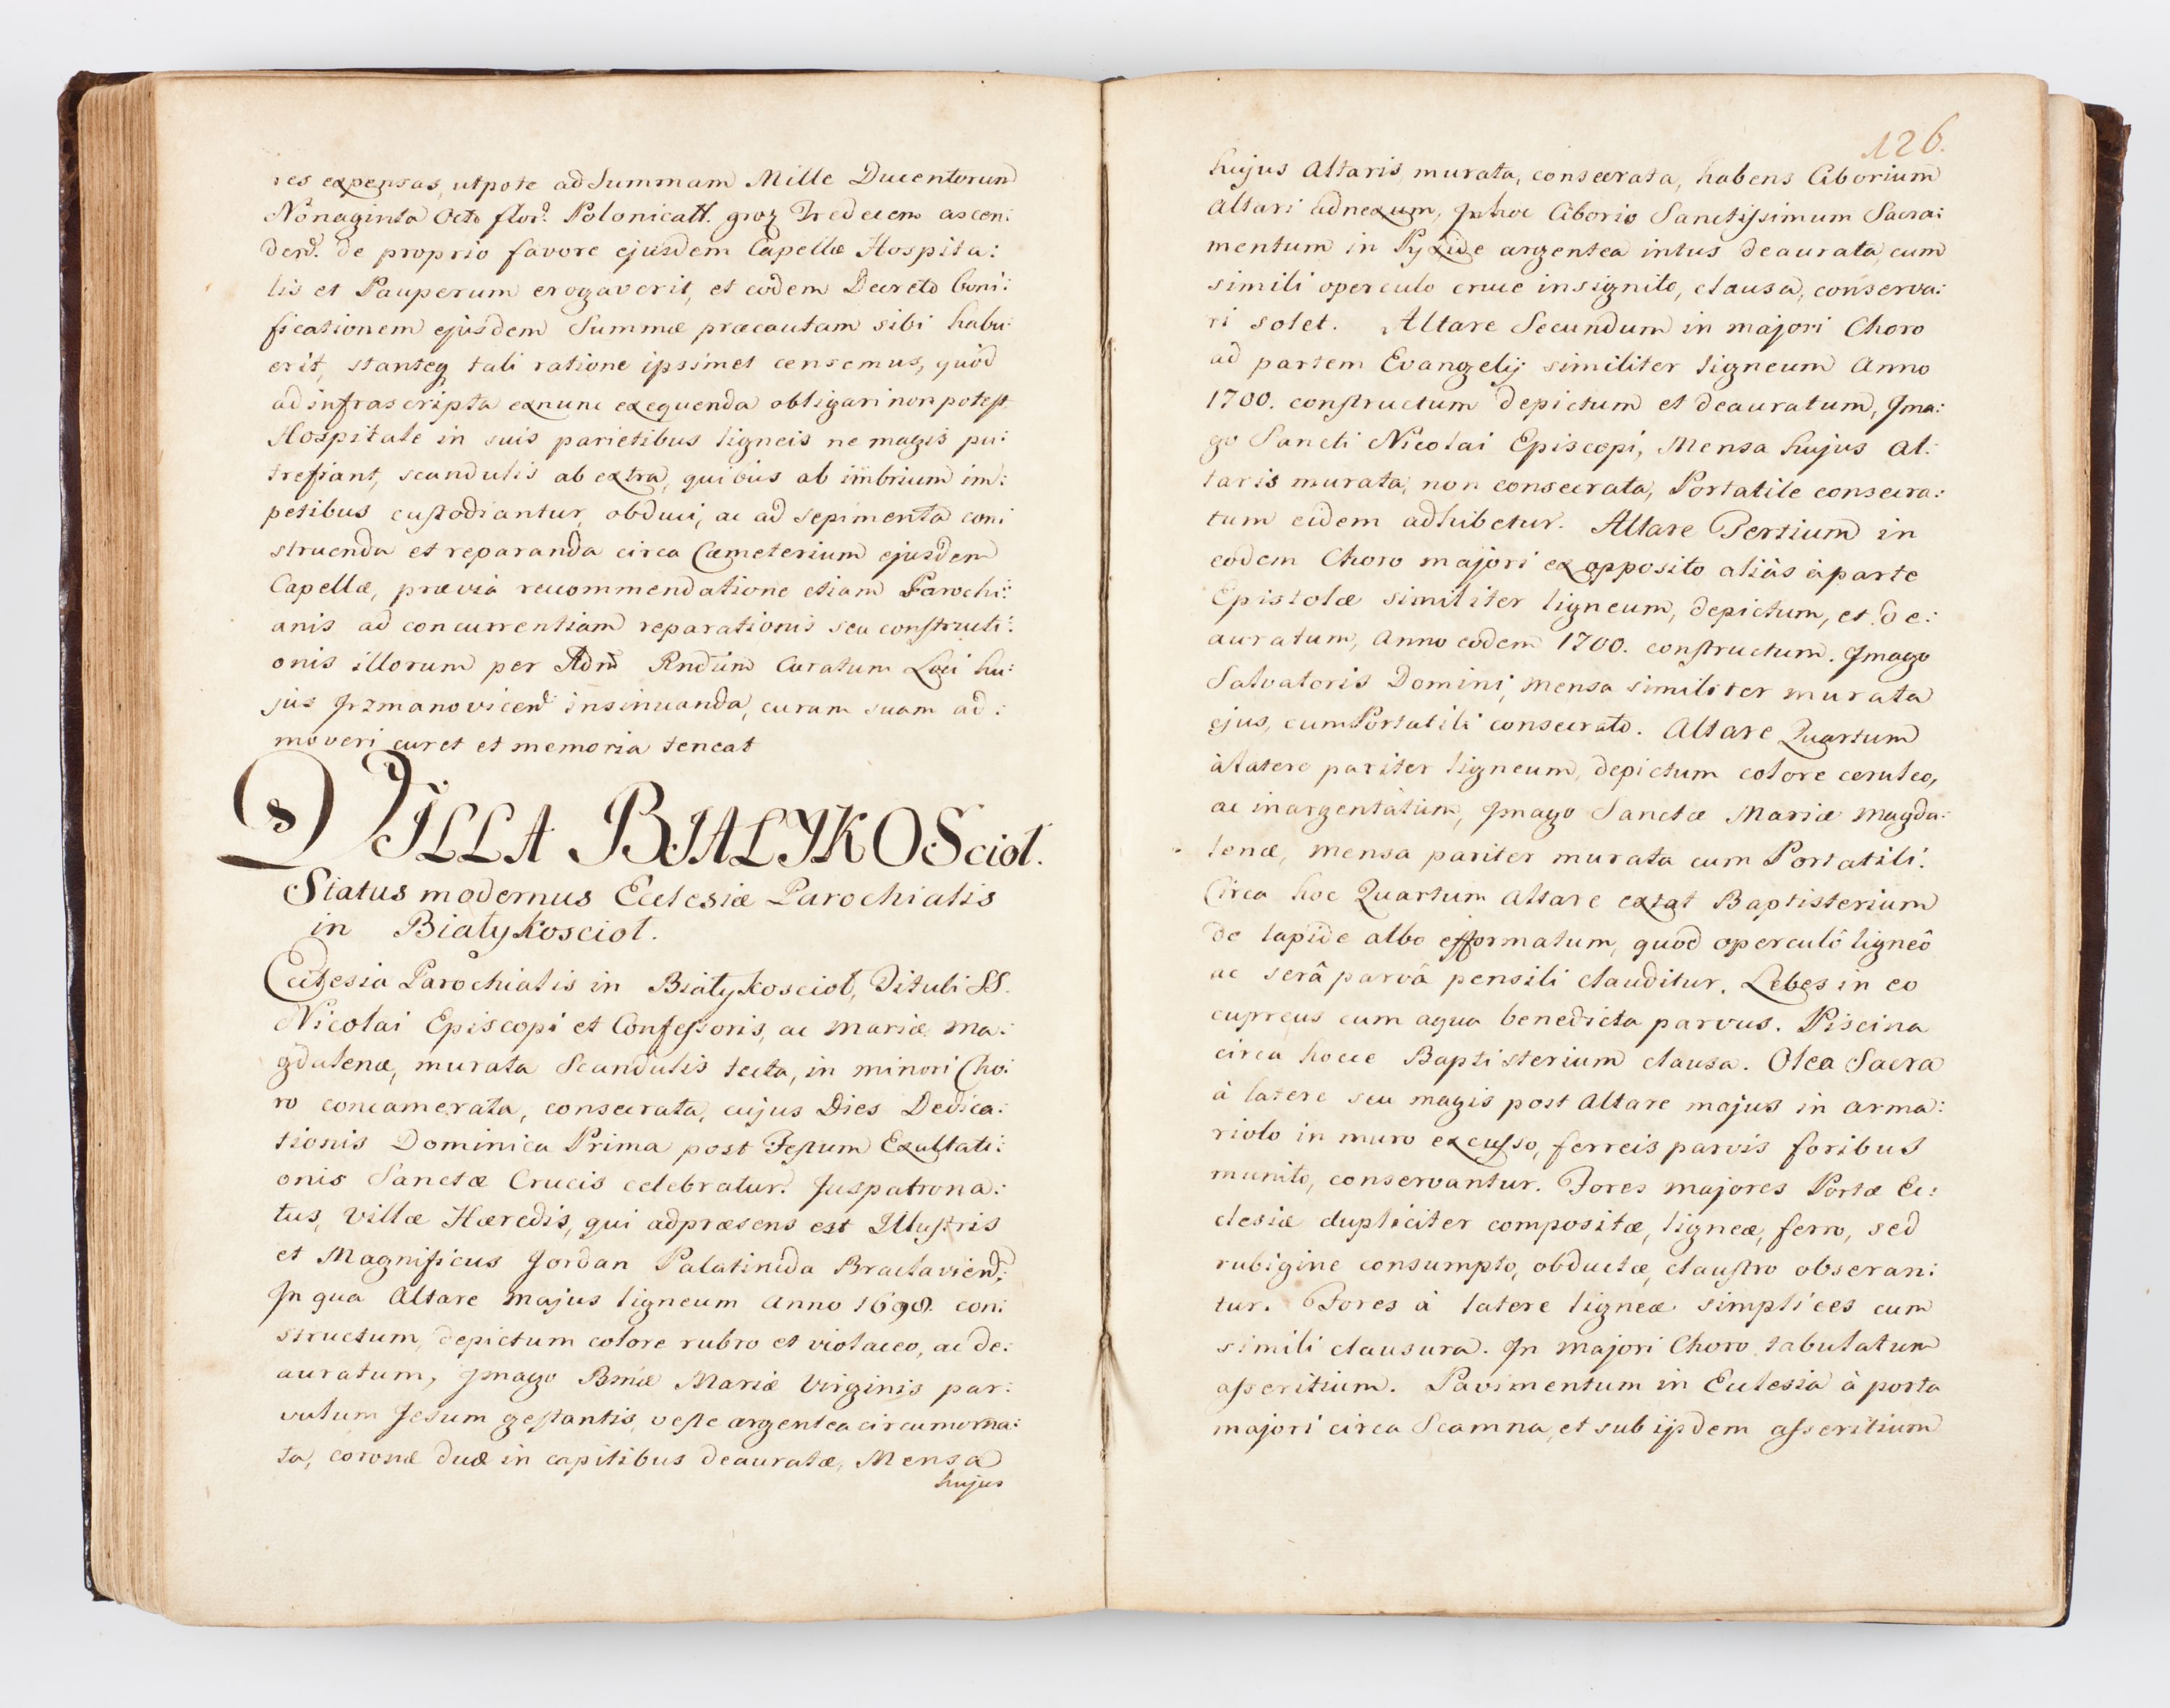 res expensas, utpote ad Summam Mille Ducentorum
Nonaginta Octo flor. Polonicall. groz Tredecem ascen:
dend. de proprio favore ejusdem Capellæ Hospita:
lis et Pauperum erogaverit, et eodem Decreto boni:
ficationem ejusdem Summæ præcautam sibi habu:
erit, stanteq tali ratione ipsimet censemus, quod
ad infrascripta exnunc exequenda obligari non potest
Hospitale in suis parietibus ligneis ne magis pu:
trefiant, scandulis ab extra, quibus ab imbrium im:
petibus custodiantur, obduci, ac ad sepimenta con:
struenda et reparanda circa Cæmeterium ejusdem
Capellæ, prævia recommendatione etiam Parochi:
anis ad concurrentiam reparationis seu constructi:
onis illorum per Adm Rndum Curatum Loci hu:
jus Jrzmanovicen insinuanda, curam suam ad:
moveri curet et memoria teneat
VILLA BIALYKOSciol.
Status modernus Ecclesiæ Parochialis
in Bialykosciol.
Ecclesia Parochialis in Bialykosciol, Tituli SS.
Nicolai Episcopi et Confessoris, ac Mariæ Ma:
gdalenæ, murata Scandulis tecta, in minori Cho:
ro concamerata, consecrata, cujus Dies Dedica:
tionis Dominica Prima post Festum Exaltati:
onis Sanctæ Crucis celebratur. Juspatrona:
tus, Villæ Hæredis, qui adpræsens est Illustris
et Magnificus Jordan Palatinida Braclavien:
Jn qua Altare majus ligneum Anno 1698. con:
structum, depictum colore rubro et violaceo, ac de:
auratum, Jmago Bmæ Mariæ Virginis par:
vulum Jesum gestantis, veste argentea circumorna:
ta, coronæ duæ in capitibus deauratæ, Mensa
hujus
126.
hujus Altaris murata, consecrata, habens Ciborium
Altari adnexum, Jn hoc Ciborio Sanctissimum Sacra:
mentum in Pyxide argentea intus deaurata, cum
simili operculo cruce insignito, clausa, conserva:
ri solet. Altare Secundum in majori Choro
ad partem Evangelij similiter ligneum Anno
1700. constructum depictum et deauratum, Jma:
go Sancti Nicolai Episcopi, Mensa hujus Al:
taris murata, non consecrata, Portatile consecra:
tum eidem adhibetur. Altare Tertium in
eodem Choro majori ex opposito aliàs à parte
Epistolæ similiter ligneum, depictum, et de:
auratum, Anno eodem 1700. constructum. Jmago
Salvatoris Domini, mensa similiter murata
ejus, cum Portatili consecrato. Altare Quartum
à latere pariter ligneum, depictum colore ceruleo,
ac inargentatum, Jmago Sanctæ Mariæ Magda:
lenæ, mensa pariter murata cum Portatili.
Circa hoc Quartum Altare extat Baptisterium
de lapide albo efformatum, quod operculô ligneô
ac serâ parvâ pensili clauditur. Lebes in eo
cupreus cum aqua benedicta parvus. Piscina
circa hocce Baptisterium clausa. Olea Sacra
à latere seu magis post Altare majus in arma:
riolo in muro excusso, ferreis parvis foribus
munito, conservantur. Fores majores Portæ Ec:
clesiæ dupliciter compositæ, ligneæ, ferro, sed
rubigine consumpto, obductæ, claustro obseran:
tur. Fores à latere ligneæ simplices cum
simili clausura. Jn majori Choro tabulatum
asseritium. Pavimentum in Ecclesia à porta
majori circa Scamna, et sub ijsdem asseritium